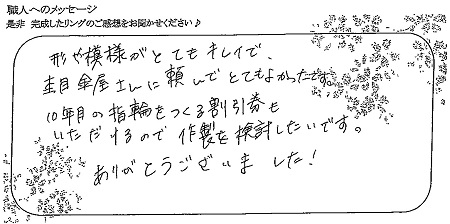 職人へのメッセージ
是非 完成したリングのご感想をお聞かせください♪
形や模様がとてもキレイで、
杢目金屋さんに頼んでとてもよかったです。
10年目の指輪をつくる割引券も
いただけるので作製を検討したいです。
ありがとうございました!